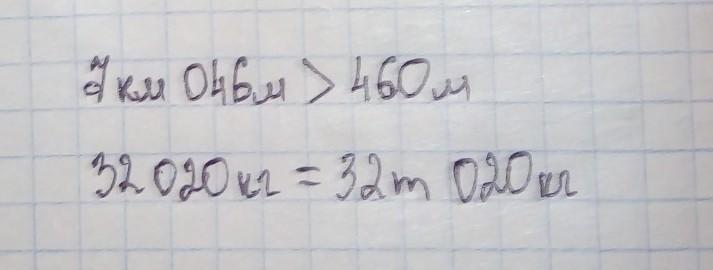 7км 046м > 460м
32 020кг = 32т 020кг